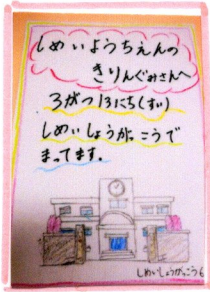 しめいようちえんの
きりんぐみさんへ
3がつ13にち(すい)
しめいしょうがっこうで
まってます。
しめいしょうがっこう6